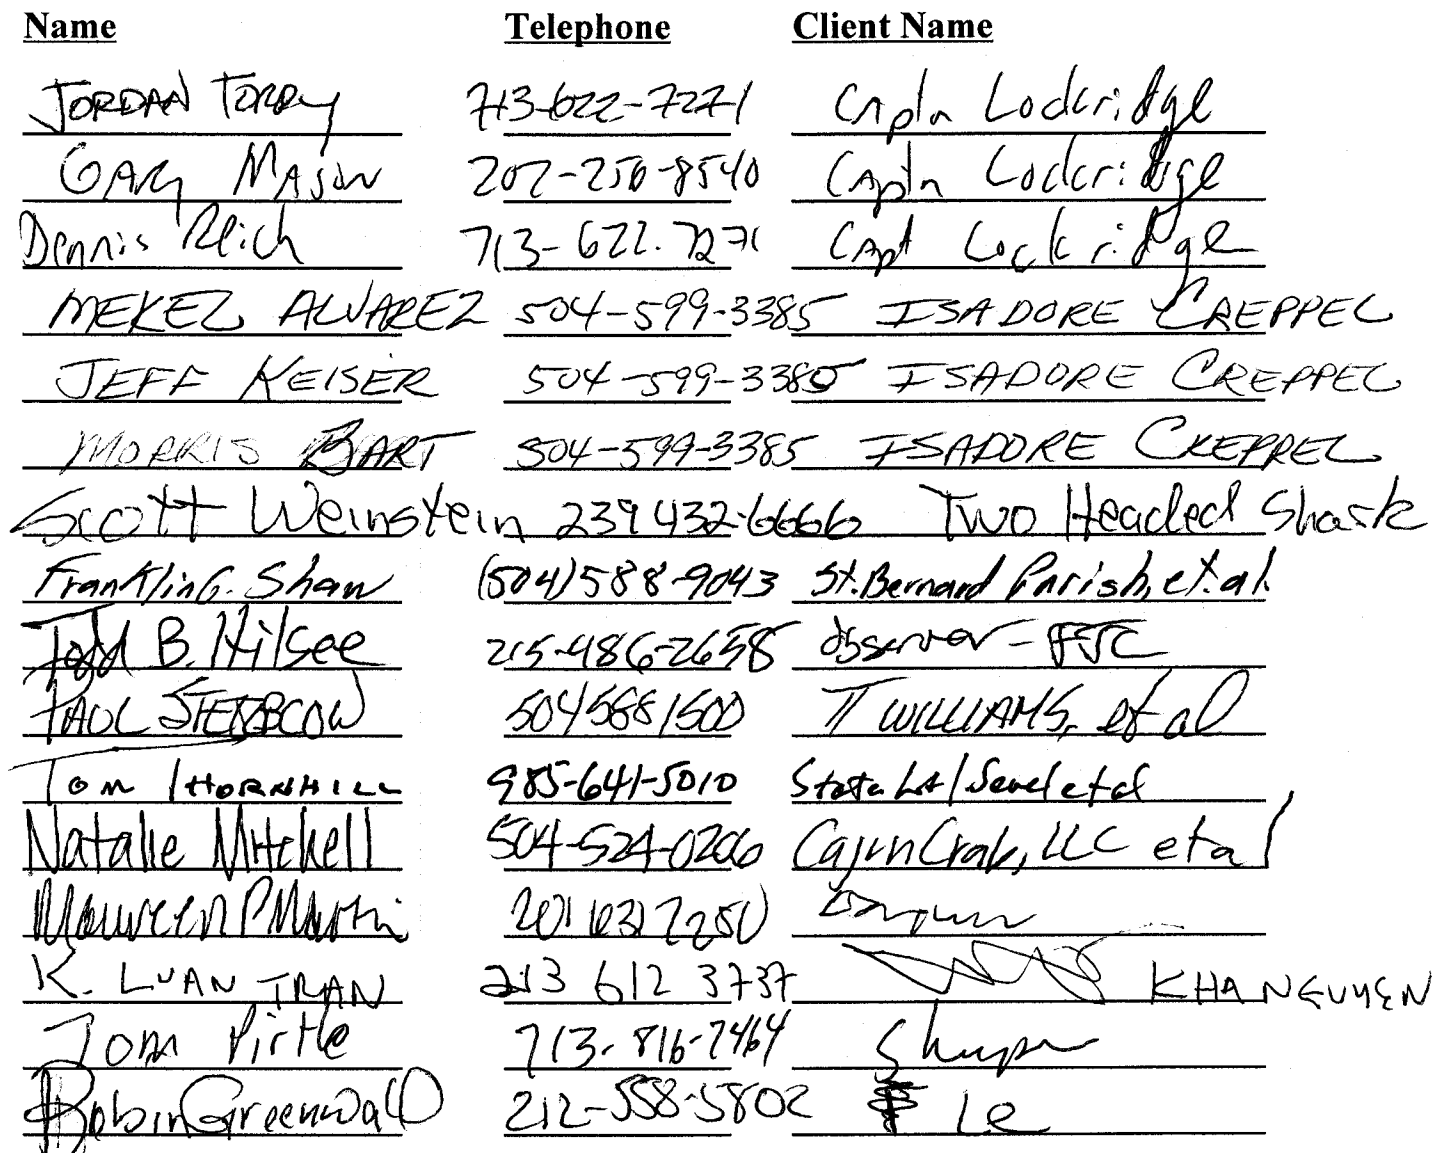 Name Telephone Client Name
JORDAN TORRY 713-622-7271 Captn Lockridge
GARY MASON 202-256-8540 Captn Lockridge
Dennis Reich 713-622.7271 Capt Lockridge
MEKEL ALVAREZ 504-599-3385 ISADORE CREPPEL
JEFF KEISER 504-599-3385 ISADORE CREPPEL
MORRIS BART 504-599-3385 ISADORE CREPPEL
Scott Weinstein 239 432-6666 Two Headed Shark
Franklin G. Shaw (504)588-9043 St. Bernard Parish, et. al.
Todd B. Hilsee 215-486-2658 observer - FJC
PAUL STERBCOW 504 588 1500 T WILLIAMS, et al
TOM THORNHILL 985-641-5010 et al
Natalie Mitchell 504-524-0206 Cajun Crab, LLC et al
Maureen P Martin 201 637 7250
K. LUAN TRAN 213 612 3737 KHA NGUYEN
Tom Pirtle 713-816-7464
Robin Greenwald 212-558-5802 Le